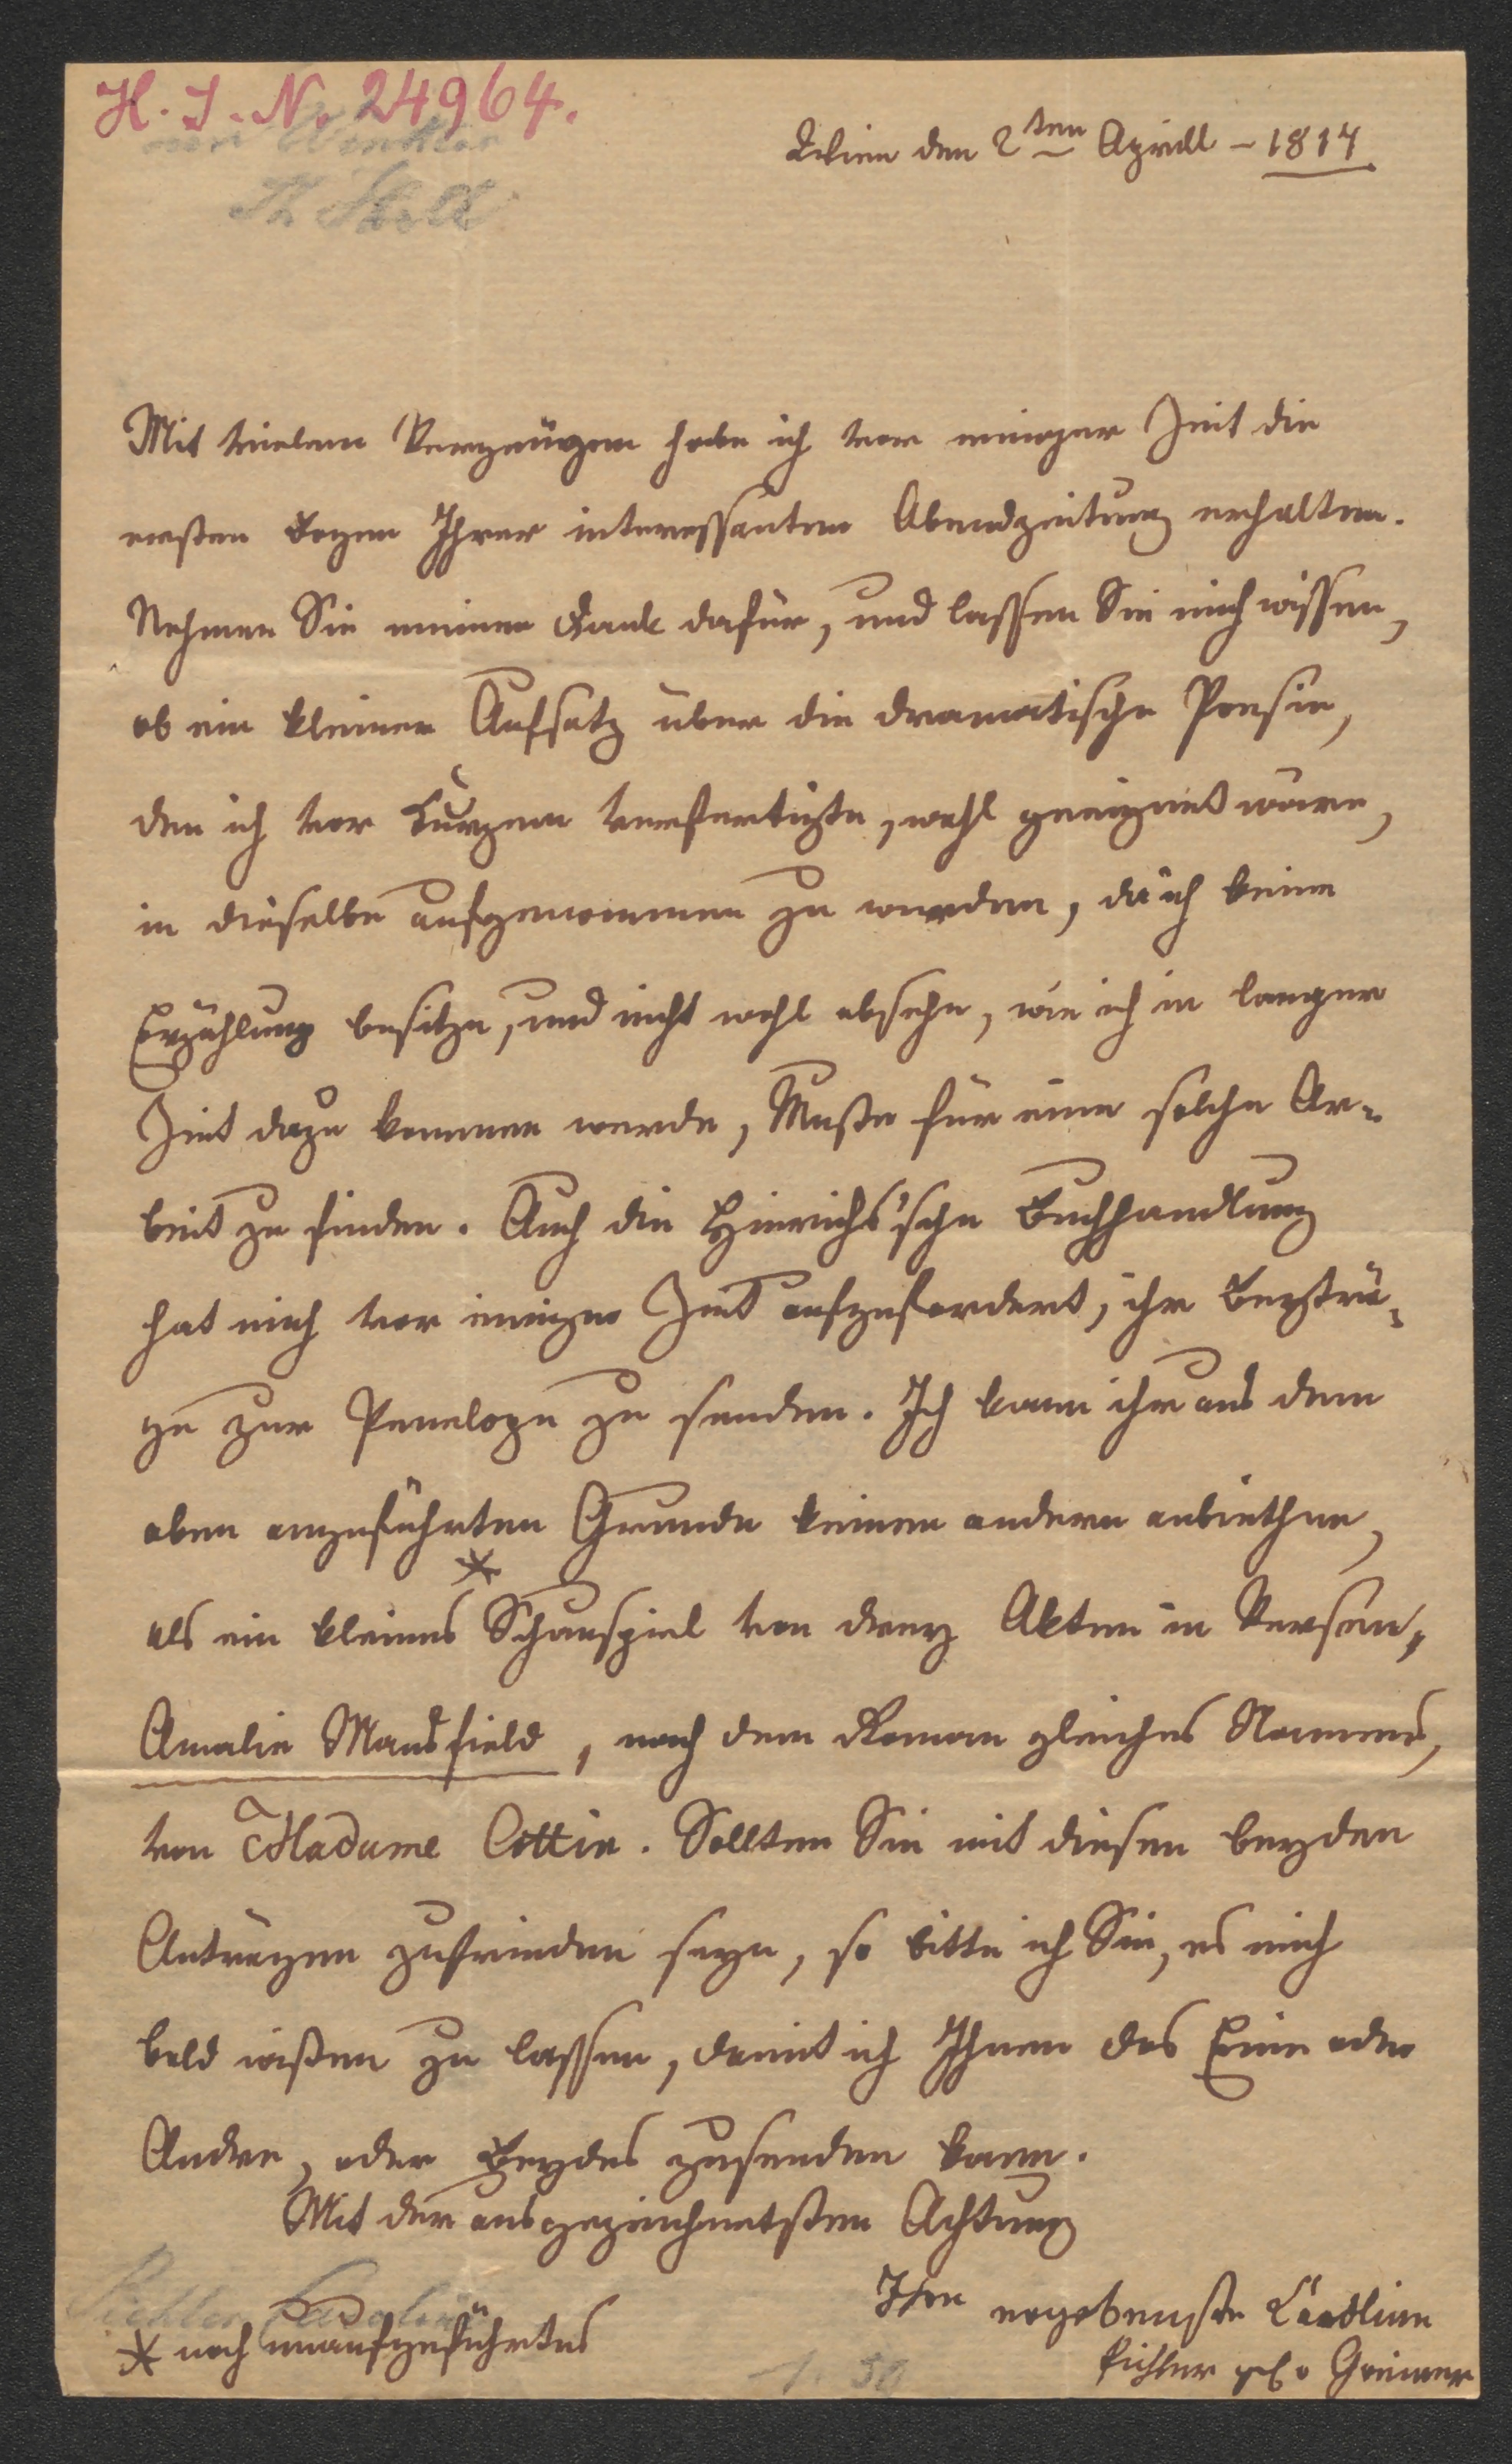 H. I. N. 24964.
Wien den 2ten Aprill – 1817
von Winkler
Th Hell
Mit vielem Vergnügen habe ich vor einiger Zeit die
ersten Bogen Ihrer interessanten Abendzeitung erhalten.
Nehmen Sie meinen Dank dafür, und lassen Sie mich wissen,
ob ein kleiner Aufsatz über die dramatische Poesie,
den ich vor Kurzem verfertigte, wohl geeignet wäre,
in dieselbe aufgenommen zu werden, da ich keine
Erzählung besitze, und nicht wohl absehe, wie ich in langer
Zeit dazu kommen werde, Muße für eine solche Ar-
beit zu finden. Auch die Hinrichs'sche Buchhandlung
hat mich vor einiger Zeit aufgefordert, ihr Beyträ-
ge zur Penelope zu senden. Ich kann ihr aus dem
oben angeführten Grunde keinen andern anbiethen,
als ein kleines * Schauspiel von drey Akten in Versen,
Amalie Mansfield, nach dem Roman gleiches Namens,
von Madame Cottin. Sollten Sie mit diesen beyden
Anträgen zufrieden seyn, so bitte ich Sie, es mich
bald wißen zu lassen, damit ich Ihnen das Eine oder
Andre, oder Beydes zusenden kann.
Mit der ausgezeichnetsten Achtung
Ihre ergebenste Caroline
Pichler geb. Greiner
Pichler Caroline
* noch unaufgeführtes
1. 50